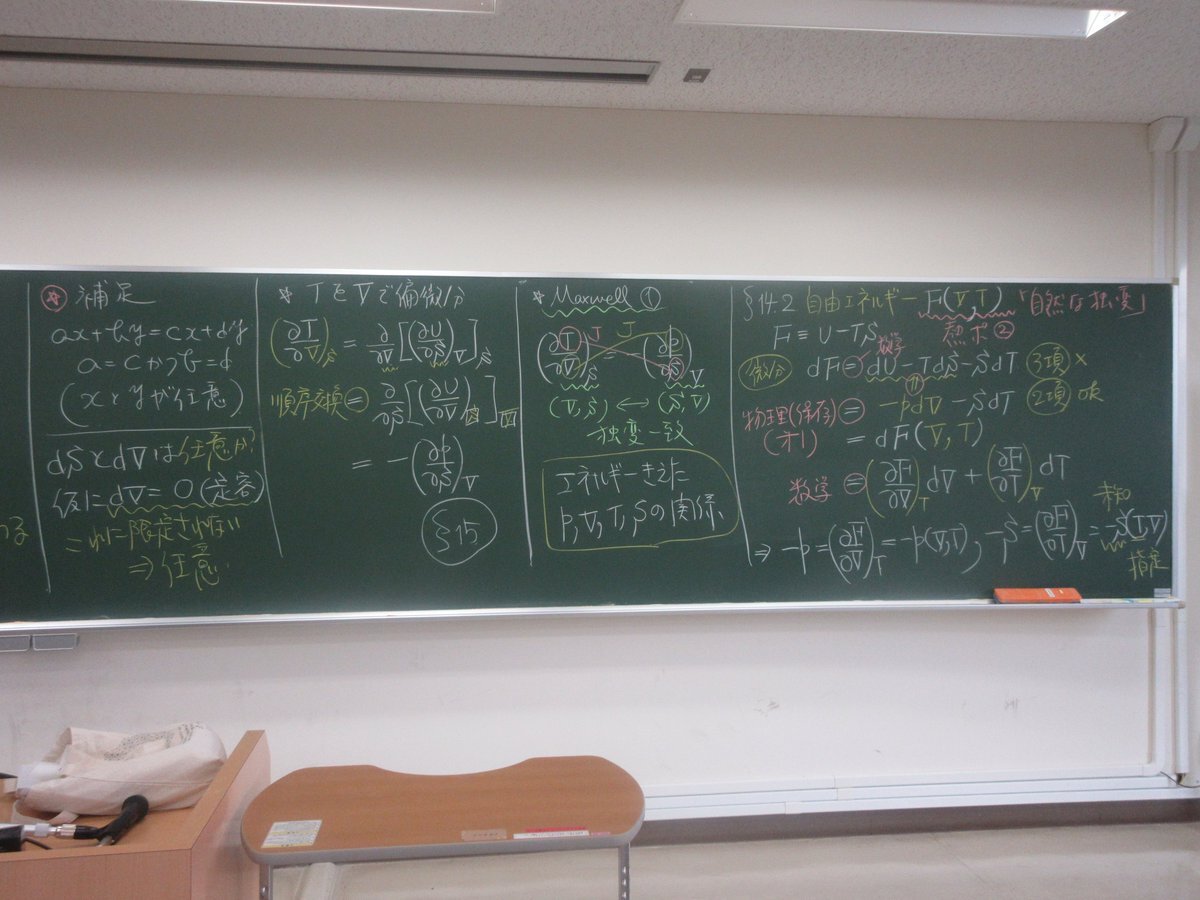 ☆ 補足
ax+by=cx+dy
a=cかつb=d
(xとyが任意)
dSとdVは任意か?
仮にdV=0(定容)
これに限定されない
⇒任意
☆ TをVで偏微分
(∂T/∂V)_S = ∂/∂V[(∂U/∂S)_V]_S
順序交換= ∂/∂S[(∂U/∂V)_S]_V
= -(∂p/∂S)_V
§15
☆ Maxwell ①
(∂T/∂V)_S = -(∂p/∂S)_V
(V,S) ↔ (S,V)
独変一致
エネルギーきえた
p,V,T,Sの関係
§14.2 自由エネルギー F(V,T) 「自然な独変」
F≡U-TS 熱ポ②
微分 dF = dU-TdS-SdT 3項×
数学
物理(保存)= -pdV-SdT 2項 OK
(才1) = dF(V,T)
数学= (∂F/∂V)_T dV + (∂F/∂T)_V dT
⇒ -p=(∂F/∂V)_T=-p(V,T), -S=(∂F/∂T)_V=-S(T,V)
未知
指定